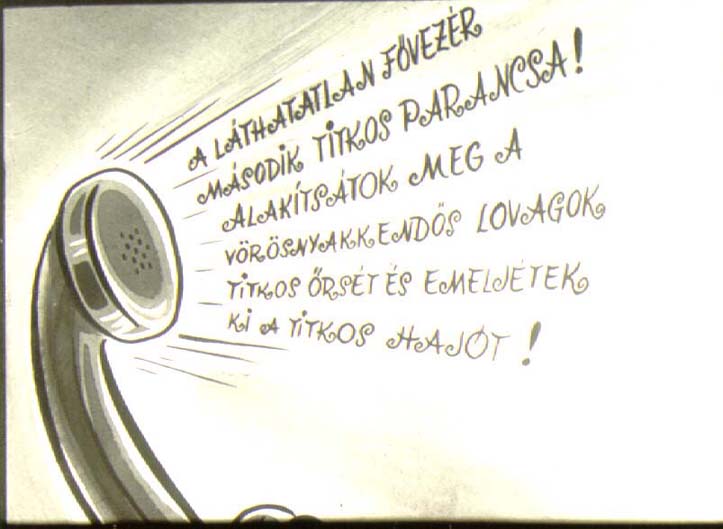 A LÁTHATATLAN FŐVEZÉR
MÁSODIK TITKOS PARANCSA!
ALAKÍTSÁTOK MEG A
VÖRÖSNYAKKENDŐS LOVAGOK
TITKOS ŐRSÉT ÉS EMELJÉTEK
KI A TITKOS HAJÓT!